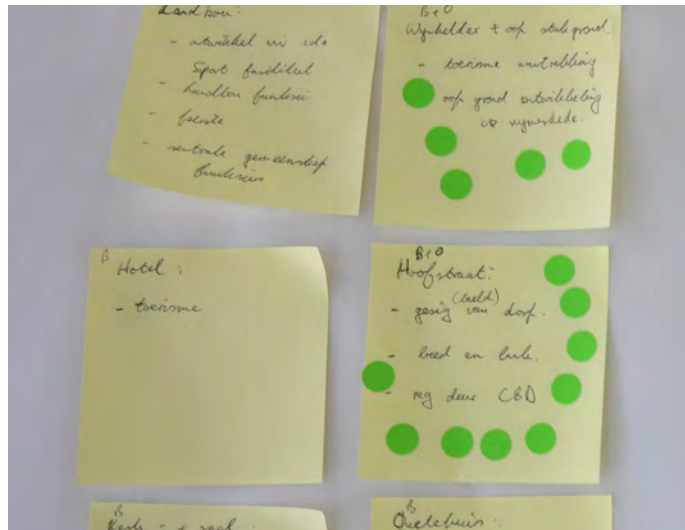 Landbou:
- ontwikkel vir
Sport fasiliteit
- handhou funksie
- feeste
- sentrale gemeenskap
funksies
B+O
Wynkelder + oop stuk grond.
- toerisme
oop grond ontwikkeling
B
Hotel :
- toerisme
B+O
Hoofstraat:
(beeld)
- gesig van dorp.
- breed en
- reg deur CBD
B
Kerk - + saal :
B
Ouetehuis :